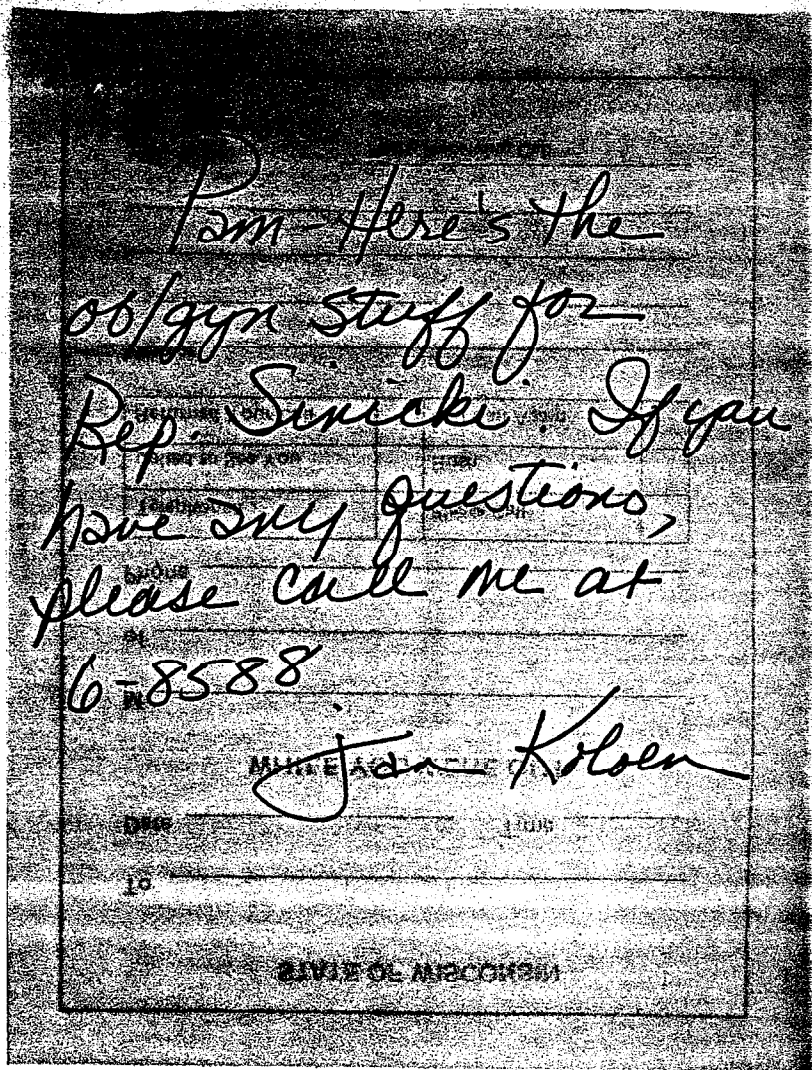 Pam - Here's the
ob/gyn stuff for
Rep. Sinicki. If you
have any questions,
please call me at
6-8588
Jan
WHILE
Date
To
STATE OF WISCONSIN